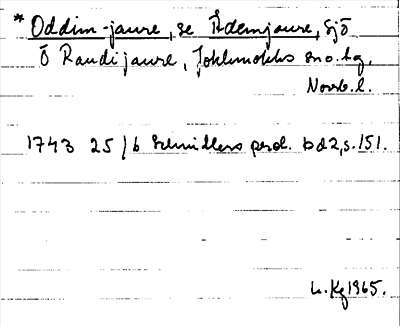 * Oddim-jaure, se Ådemjaure, sjö
Ö Randijaure, Jokkmokks sno.bg.
Norrb.l.
1743 25/6 Schmidlers perd. bd 2, s. 151.
KG 1965.